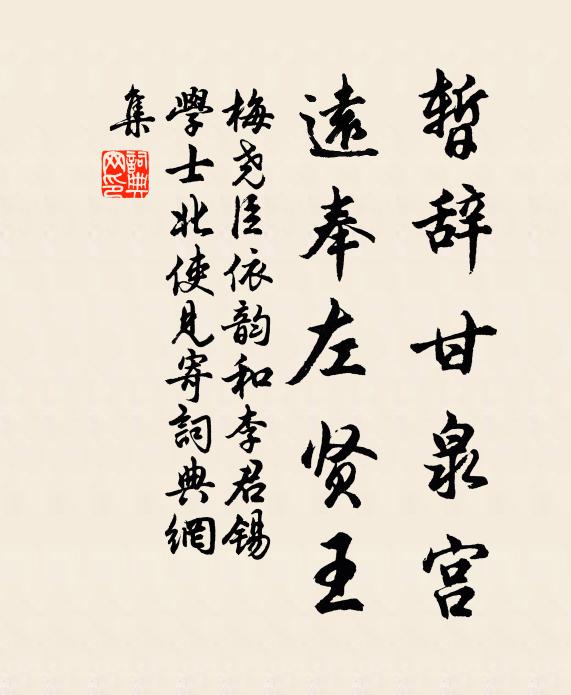 暂辞甘泉宫
遠奉左贤王
梅尧臣依韵和李君锡
學士北使見寄詞典網
集
詞典网印